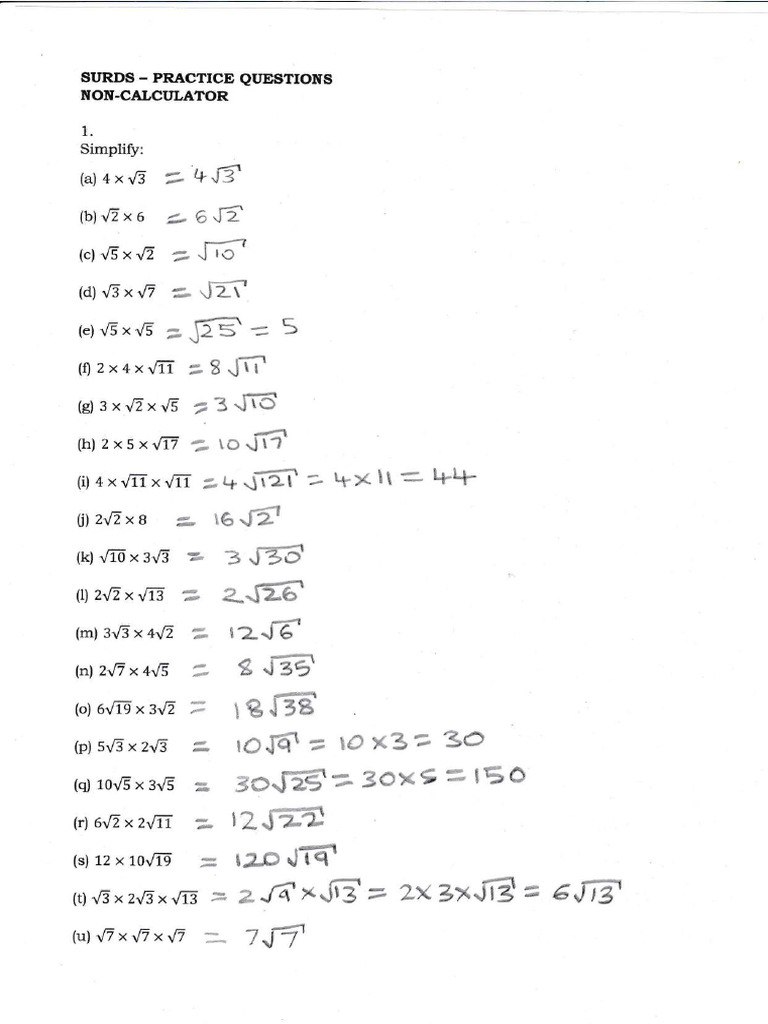 SURDS – PRACTICE QUESTIONS
NON-CALCULATOR
1.
Simplify:
(a) 4 × √3 = 4√3
(b) √2 × 6 = 6√2
(c) √5 × √2 = √10
(d) √3 × √7 = √21
(e) √5 × √5 = √25 = 5
(f) 2 × 4 × √11 = 8√11
(g) 3 × √2 × √5 = 3√10
(h) 2 × 5 × √17 = 10√17
(i) 4 × √11 × √11 = 4√121 = 4×11 = 44
(j) 2√2 × 8 = 16√2
(k) √10 × 3√3 = 3√30
(l) 2√2 × √13 = 2√26
(m) 3√3 × 4√2 = 12√6
(n) 2√7 × 4√5 = 8√35
(o) 6√19 × 3√2 = 18√38
(p) 5√3 × 2√3 = 10√9 = 10×3 = 30
(q) 10√5 × 3√5 = 30√25 = 30×5 = 150
(r) 6√2 × 2√11 = 12√22
(s) 12 × 10√19 = 120√19
(t) √3 × 2√3 × √13 = 2√9×√13 = 2×3×√13 = 6√13
(u) √7 × √7 × √7 = 7√7